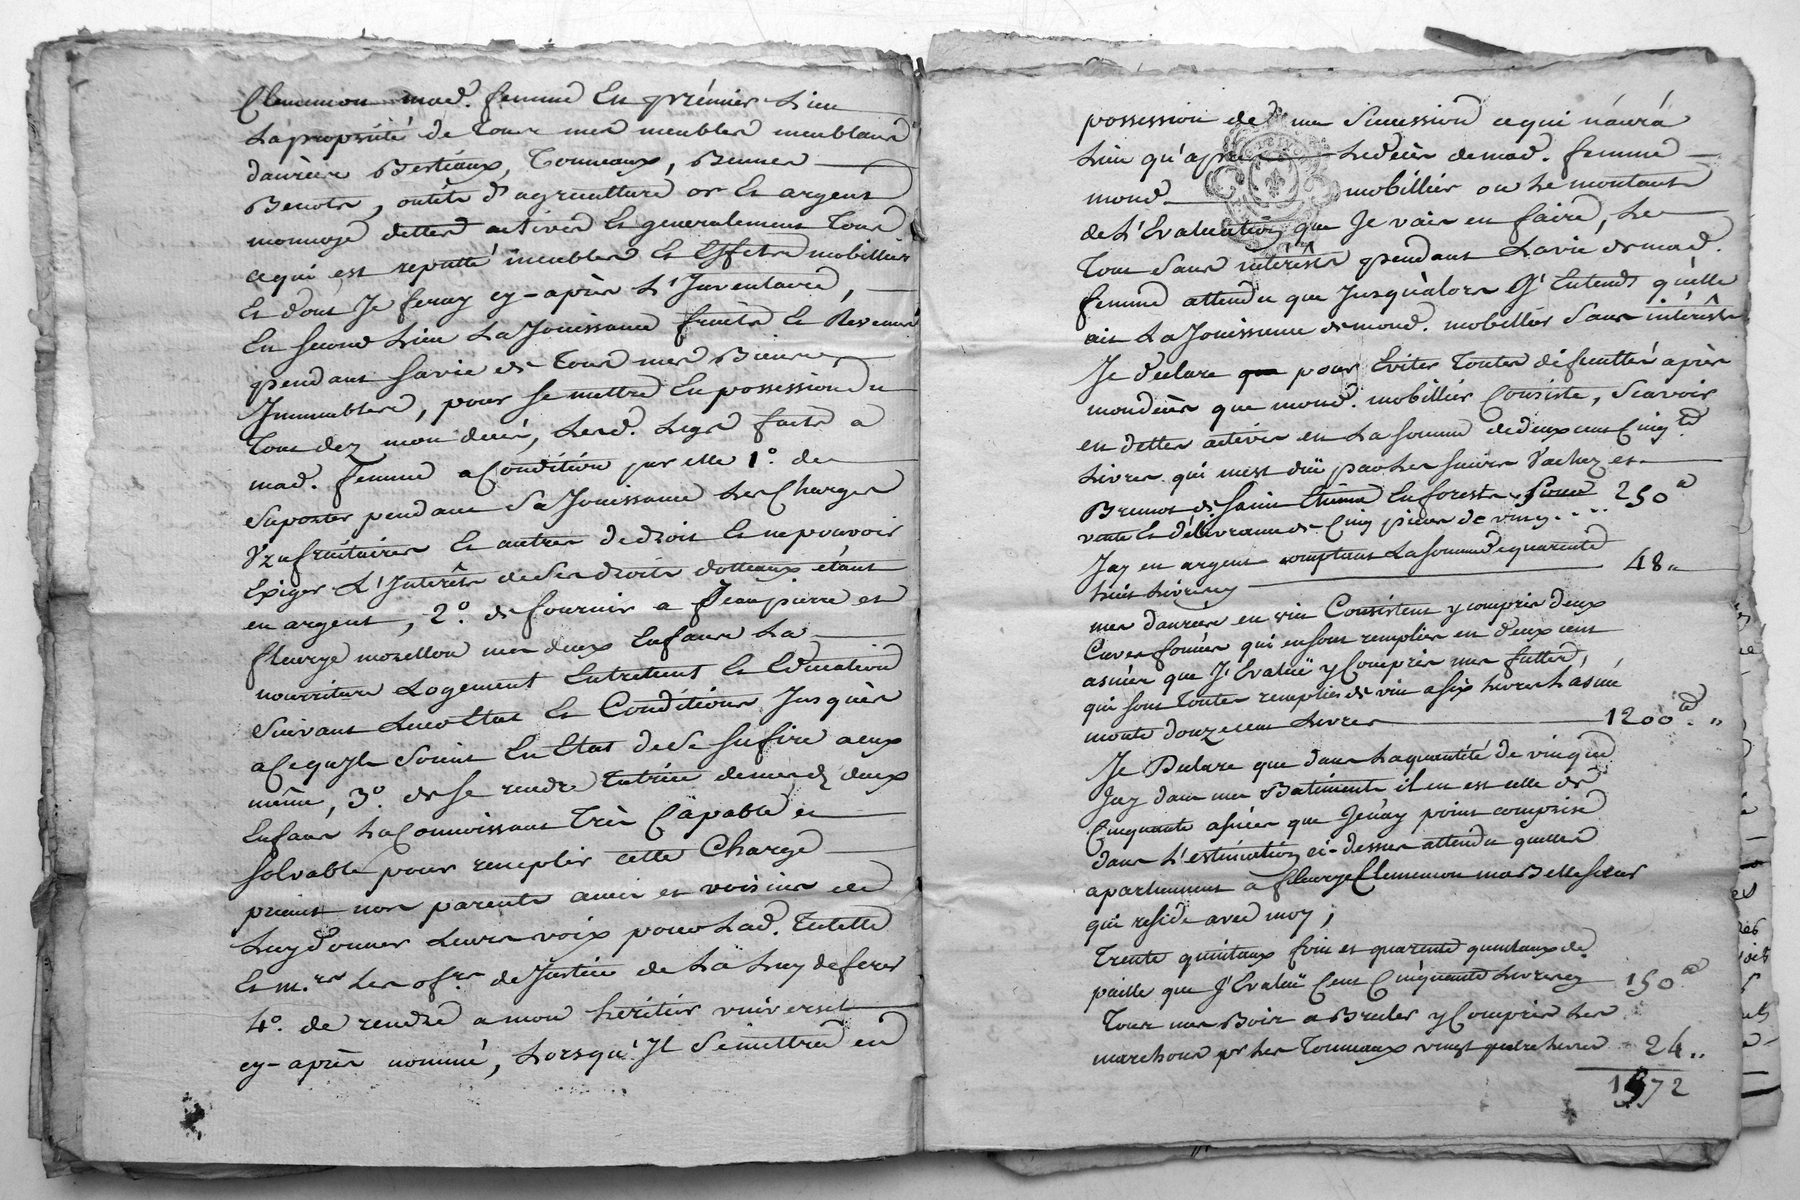 Clemencon mad. femme En prémier Lieu
La propriété de Tous mes meubles meublans
danrées Bestiaux, Tonneaux, Bennes
Benots, outils d'agriculture or Et argent
monnoyé dettes actives Et generalement Tous
ce qui est reputté meubles Et Effets mobilliers
Et dont Je feray cy-après L'Inventaire,
En second Lieu La Jouissance fruits Et Revenus
pendant sa vie de Tous mes Biens
Immeubles, pour se mettre En possession du
Tout dez mon decés, Lesd. Legs faits a
mad. femme a Condition par elle 1°. de
suporter pendant Sa Jouissance Les Charges
Vzufruitaires Et autres de droit Et ne pouvoir
Exiger L'Intérêts de Ses droits dotteaux étant
en argent, 2°. de fournir a Jean pierre et
fleurye mozellon mes deux Enfans La
nourriture Logement Entretient Et Education
Suivant Leur Etat Et Conditions Jusques
a Ce qu'Ils Soient En Etat de Se sufire a eux
même, 3°. de se rendre Tutrice de mesd. deux
Enfans La Connoissant Très Capable et
solvable pour remplir cette Charge
priant nos parents amis et voisins de
Luy donner Leurs voix pour Lad. Tutelle
Et m.rs Les of.rs de Justice de La Luy deferer
4°. de rendre a mon héritier universel
cy-après nommé, Lorsqu'Il Se mettra en
possession de ma Succession ce qui n'aura
Lieu qu'après Le decès de mad. femme
mond. mobillier ou Le montant
de L'Evaluation que Je vais en faire, Le
Tout sans intérêts pendant La vie de mad.
femme attendu que Jusqu'alors J'Entends qu'elle
ait La Jouissance de mond. mobillier Sans intérêts
Je declare que pour Eviter Toutes dificultés après
mon decès que mond. mobillier Consiste, Scavoir
en dettes actives en La somme de deux cent Cinq.te
Livres qui m'est düë par Les sieurs Vachez et
Brunot de Saint Etienne En forests pour 250 ₶
vente Et délivrance de Cinq pièces de vin
Jay en argent comptant La somme de quarente
huit Livres cy 48 "
mes danrées en vin Consistent y compris deux
Cuves foncées qui en sont remplies en deux cent
asnées que J'Evaluë y Compris mes futtes
qui sont Toutes remplies de vin a six Livres L'asnée
monte douze cent Livres 1200 ₶ "
Je Declare que dans La quantité de vin que
Jay dans mes Batiments il en est celle de
Cinquante asnées que Je n'ay point comprise
dans L'estimation ci-dessus attendu quelles
apartiennent a fleurye Clemencon ma Belle soeur
qui reside avec moy;
Trente quintaux foin et quarente quintaux de
paille que J'Evaluë Cent Cinquante Livres cy 150 ₶
Tous mes Bois a Bruler y Compris Les
pr Les Tonneaux vingt quatre Livres 24 "
1672